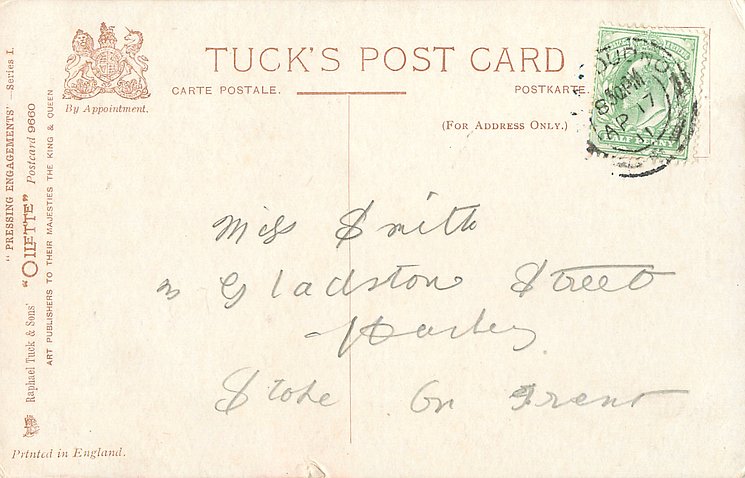 TUCK'S POST CARD
CARTE POSTALE. POSTKARTE
(FOR ADDRESS ONLY.)
By Appointment.
8 30 PM
AP 17
11
Miss Smith
Gladston Street
Stoke On Trent
"PRESSING ENGAGEMENTS" — Series I.
Raphael Tuck & Sons' "OILETTE" Postcard 9660
ART PUBLISHERS TO THEIR MAJESTIES THE KING & QUEEN
Printed in England.